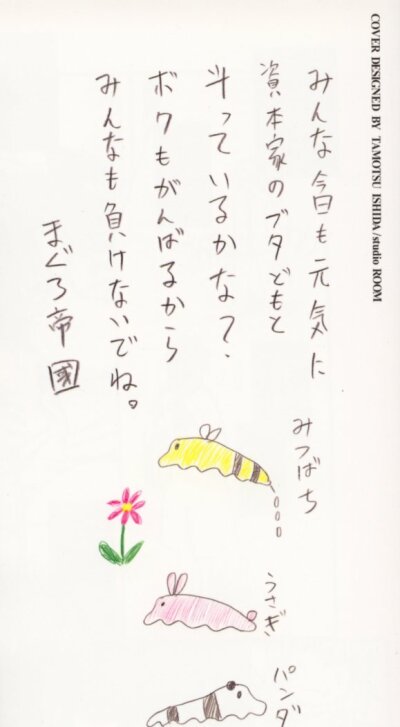 COVER DESIGNED BY TAMOTSU ISHIDA/studio ROOM
みんな今日も元気に
資本家のブタどもと
斗っているかな?.
ボクもがんばるから
みんなも負けないでね。
まぐろ帝國
みつばち
うさぎ
パンダ